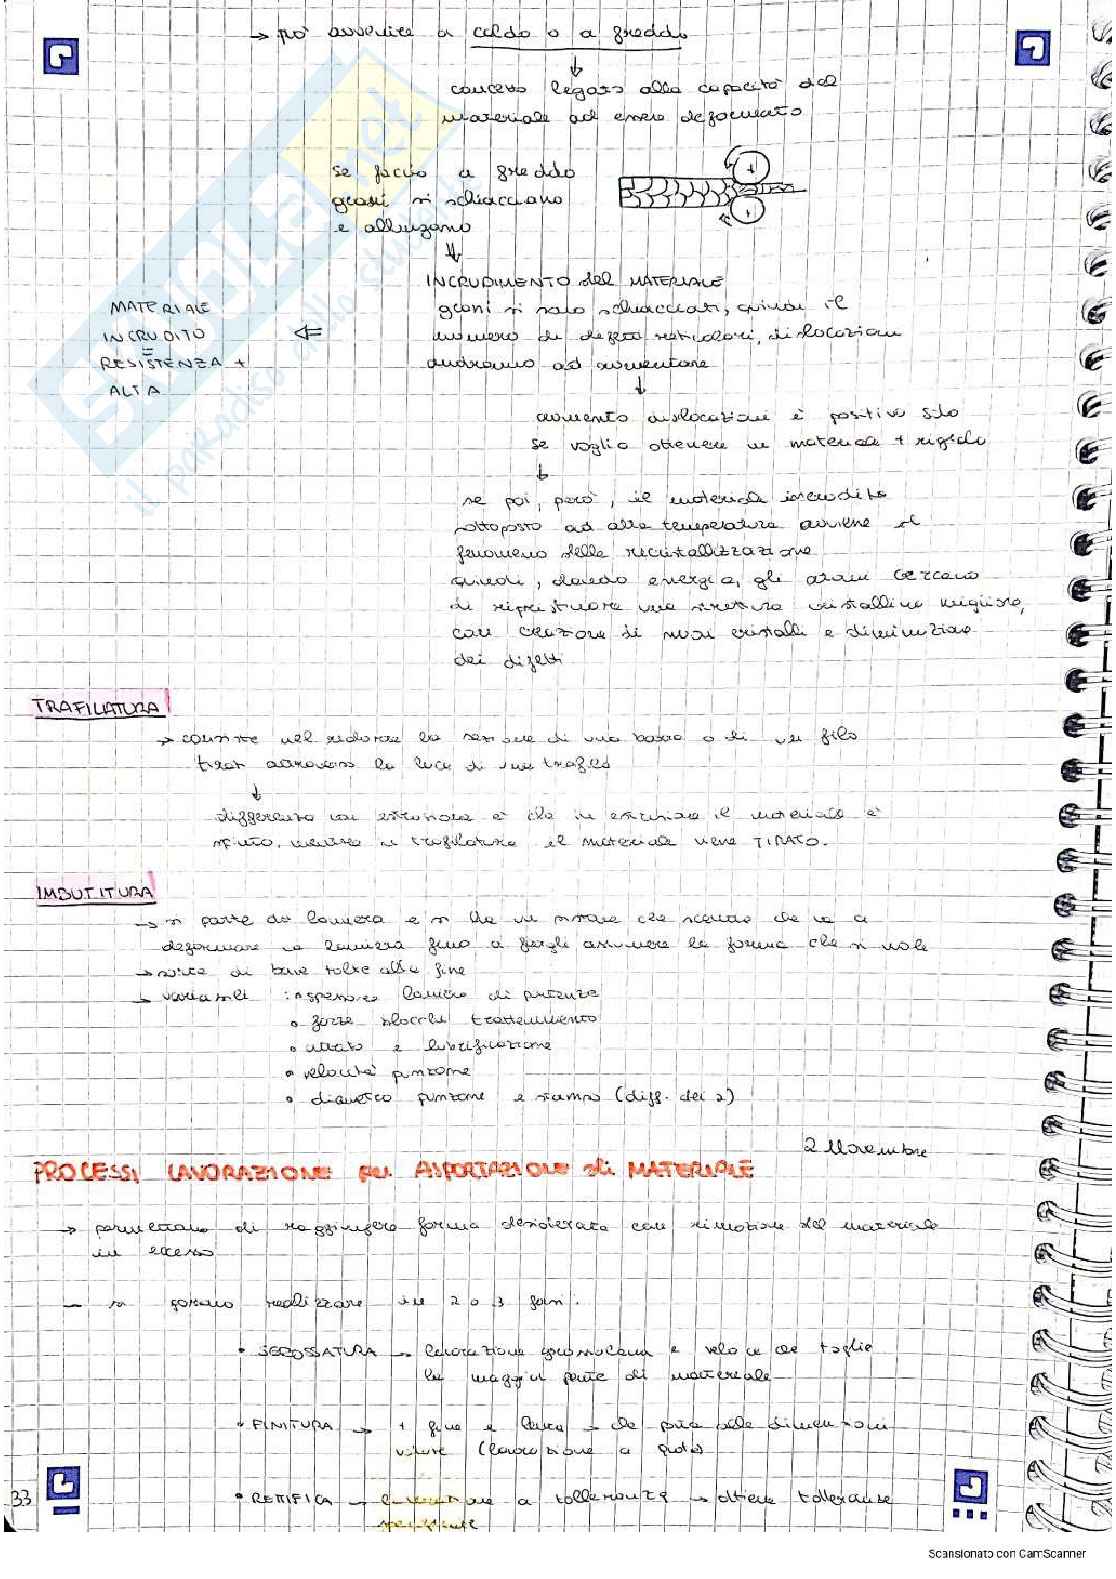 → può avvenire a caldo o a freddo
concetto legato alla capacità del
materiale ad essere deformato
se faccio a freddo
grani si schiacciano
e allungano
INCRUDIMENTO del MATERIALE
grani si sono schiacciati, quindi il
numero di difetti reticolari, dislocazioni
andranno ad aumentare
MATERIALE
INCRUDITO
=
RESISTENZA +
ALTA
aumento dislocazione è positivo solo
se voglio ottenere un materiale + rigido
se poi, però, il materiale incrudito
sottoposto ad alte temperature avviene il
fenomeno della ricristallizzazione
quindi, dando energia, gli atomi cercano
di ripristinare una struttura cristallina migliore,
con creazione di nuovi cristalli e diminuzione
dei difetti
TRAFILATURA
→ consiste nel ridurre la sezione di una barra o di un filo
tirati attraverso la luce di una trafila
differenza con estrusione è che in estrusione il materiale è
spinto, mentre in trafilatura il materiale viene TIRATO.
IMBUTITURA
→ si parte da lamiera e si ha un punzone che scende che va a
deformare la lamiera fino a fargli assumere la forma che si vuole
→ di due volte alla fine
→ variabili: spessore lamiera di partenza
• forza blocchi trattenimento
• attrito e lubrificazione
• velocità punzone
• diametro punzone e stampo (diff. dei 2)
2 Novembre
PROCESSI LAVORAZIONE per ASPORTAZIONE di MATERIALE
→ permettono di raggiungere forma desiderata con rimozione del materiale
in eccesso
– si possono realizzare in 2 o 3 fasi:
• SGROSSATURA → lavorazione grossolana e veloce che toglie
la maggior parte di materiale
• FINITURA → + fine e lenta → che porta alle dimensioni
volute (lavorazione a quote)
• RETIFICA → lavorazione a tolleranza → ottiene tolleranze
33
Scansionato con CamScanner